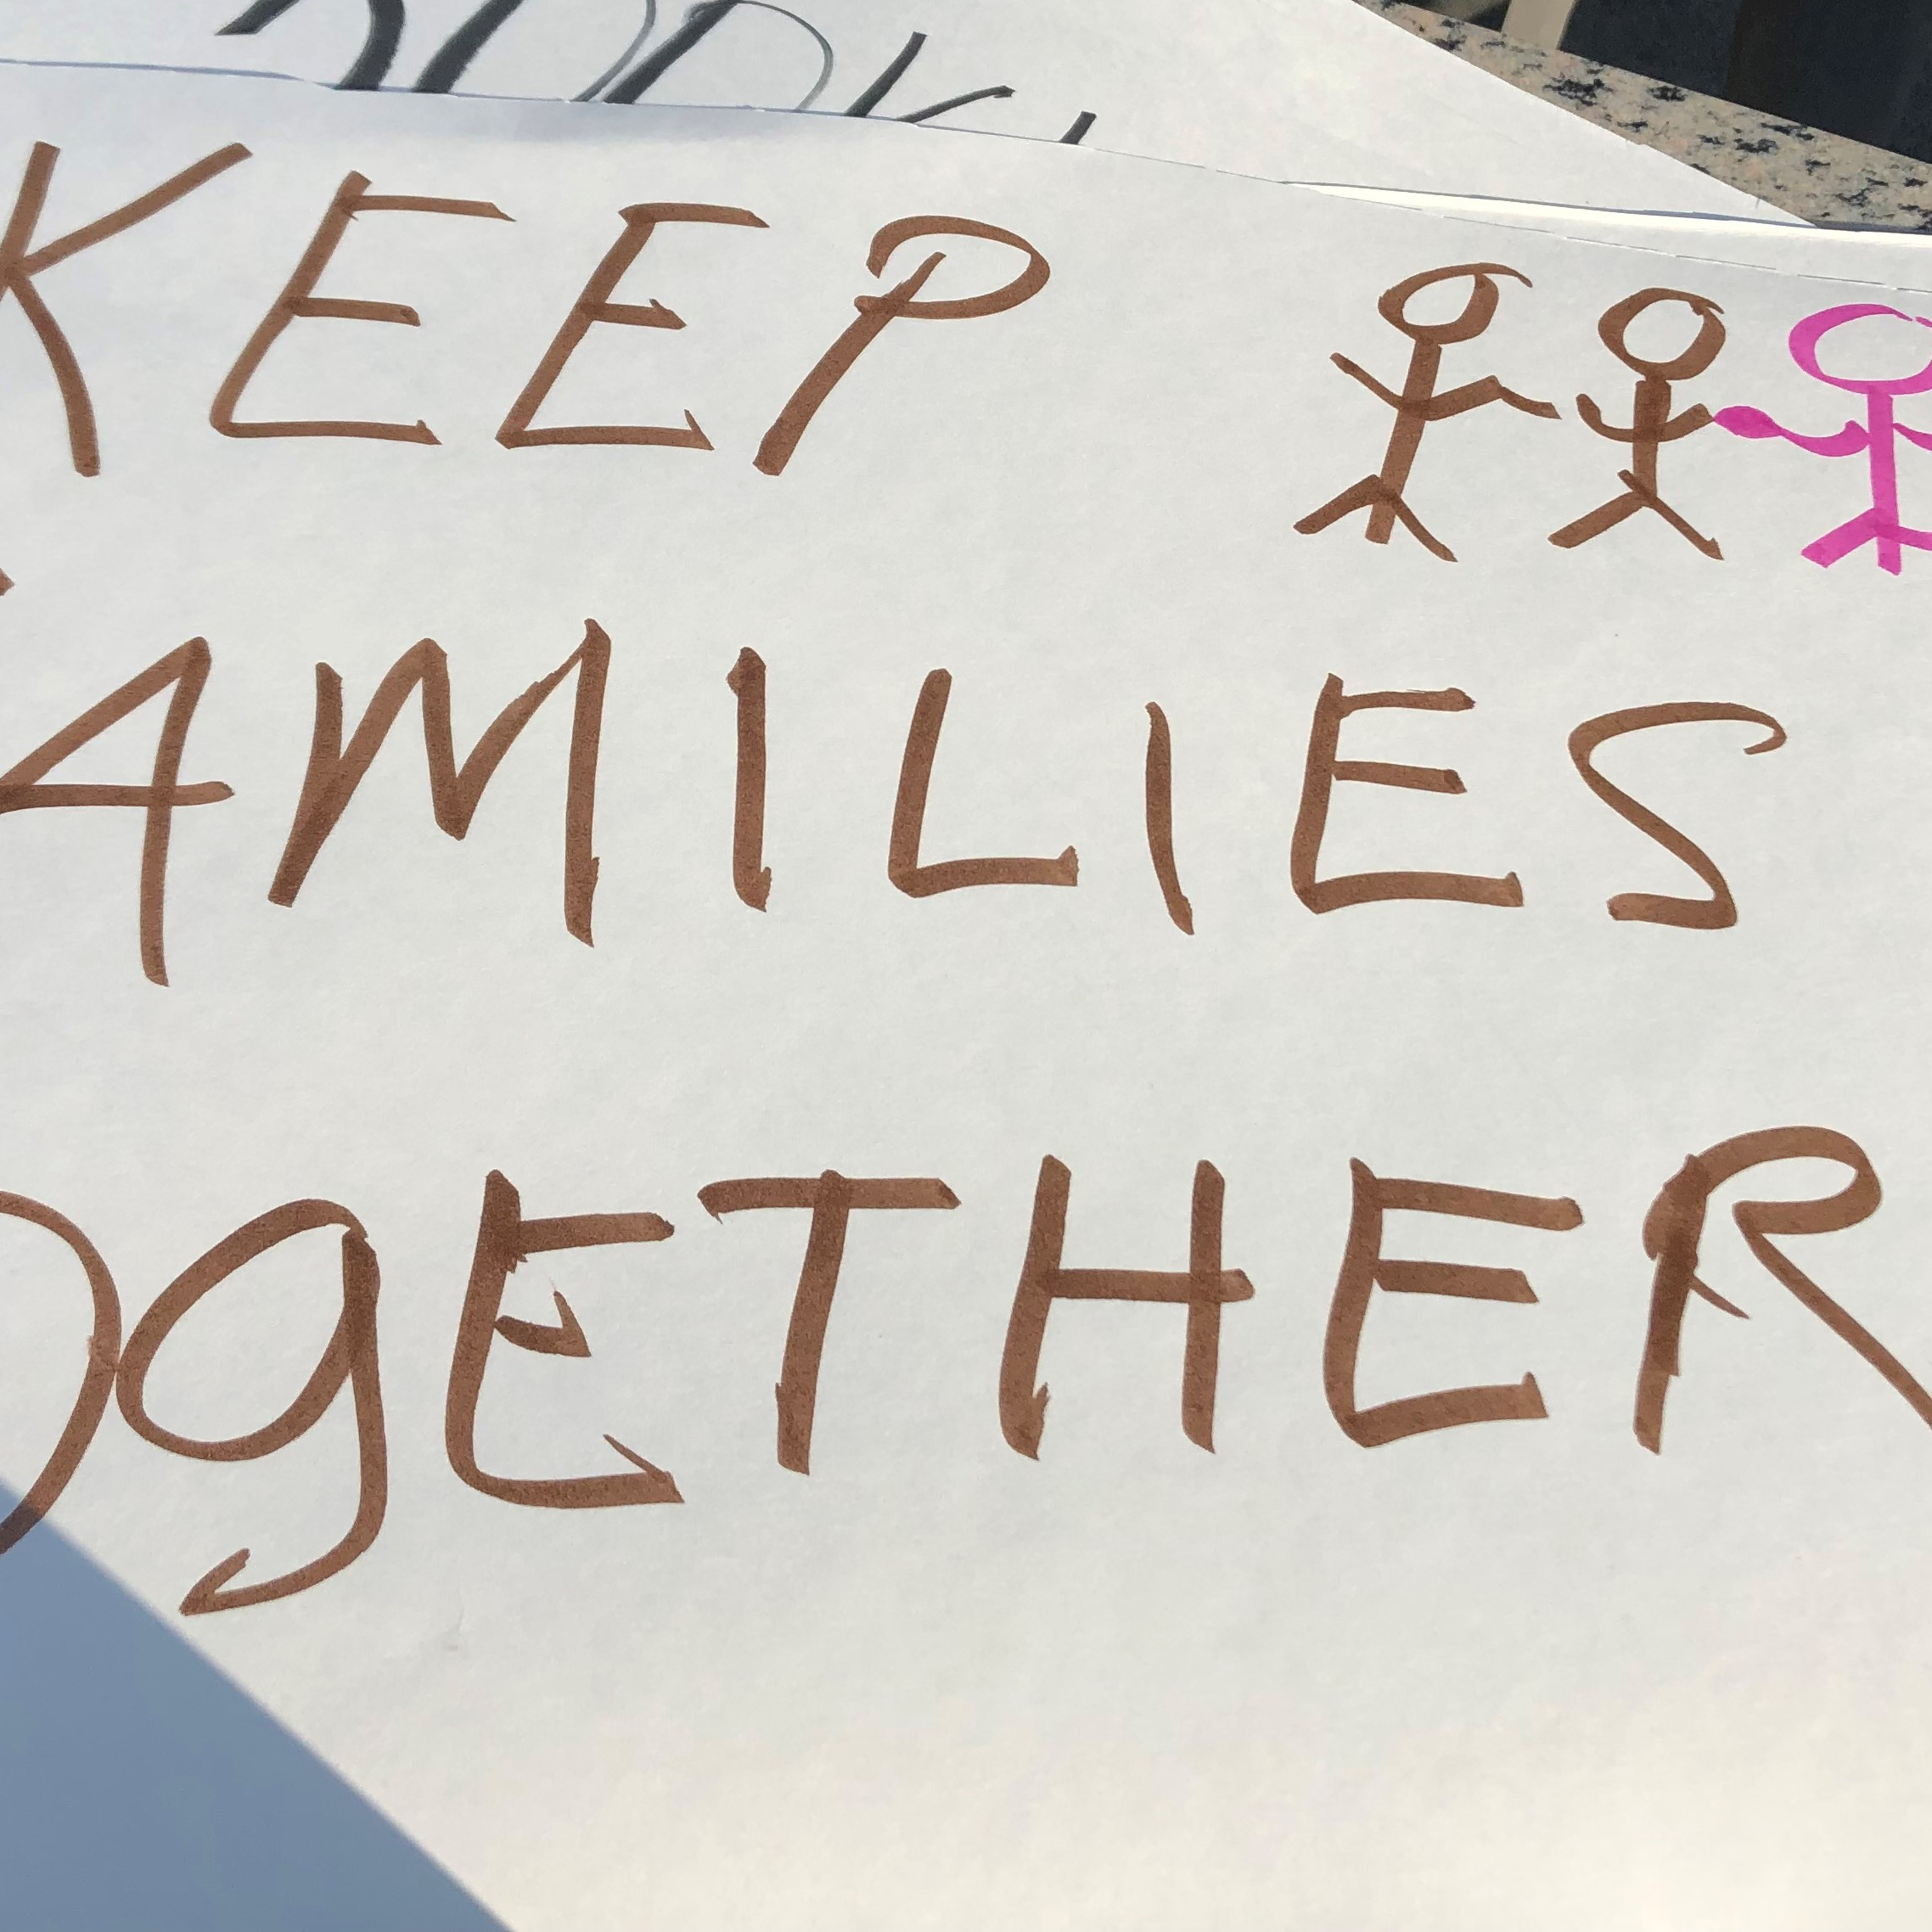 KEEP
AMILIES
OgETHER